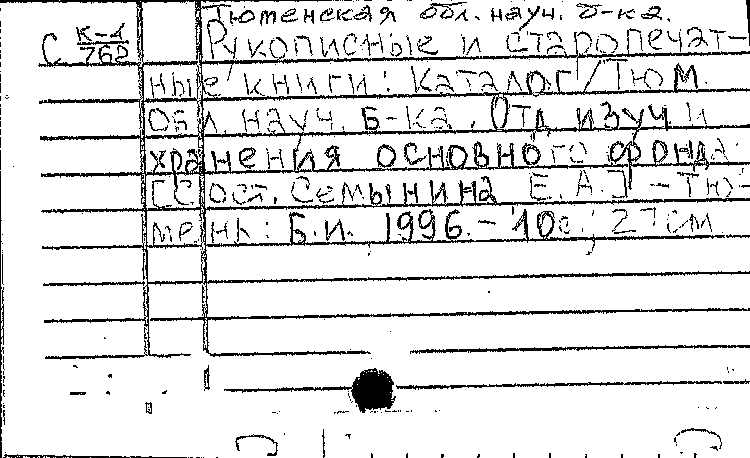 Тюменская обл. науч. б-ка.
С К-4/765 Рукописные и старопечат-
ные книги: Каталог/Тюм.
Обл. науч. Б-ка. Отд изуч и
хранения основного фонда:
[Сост. Семынина Е.А.] - Тю-
мень: Б.и. 1996. - 10с.; 27см